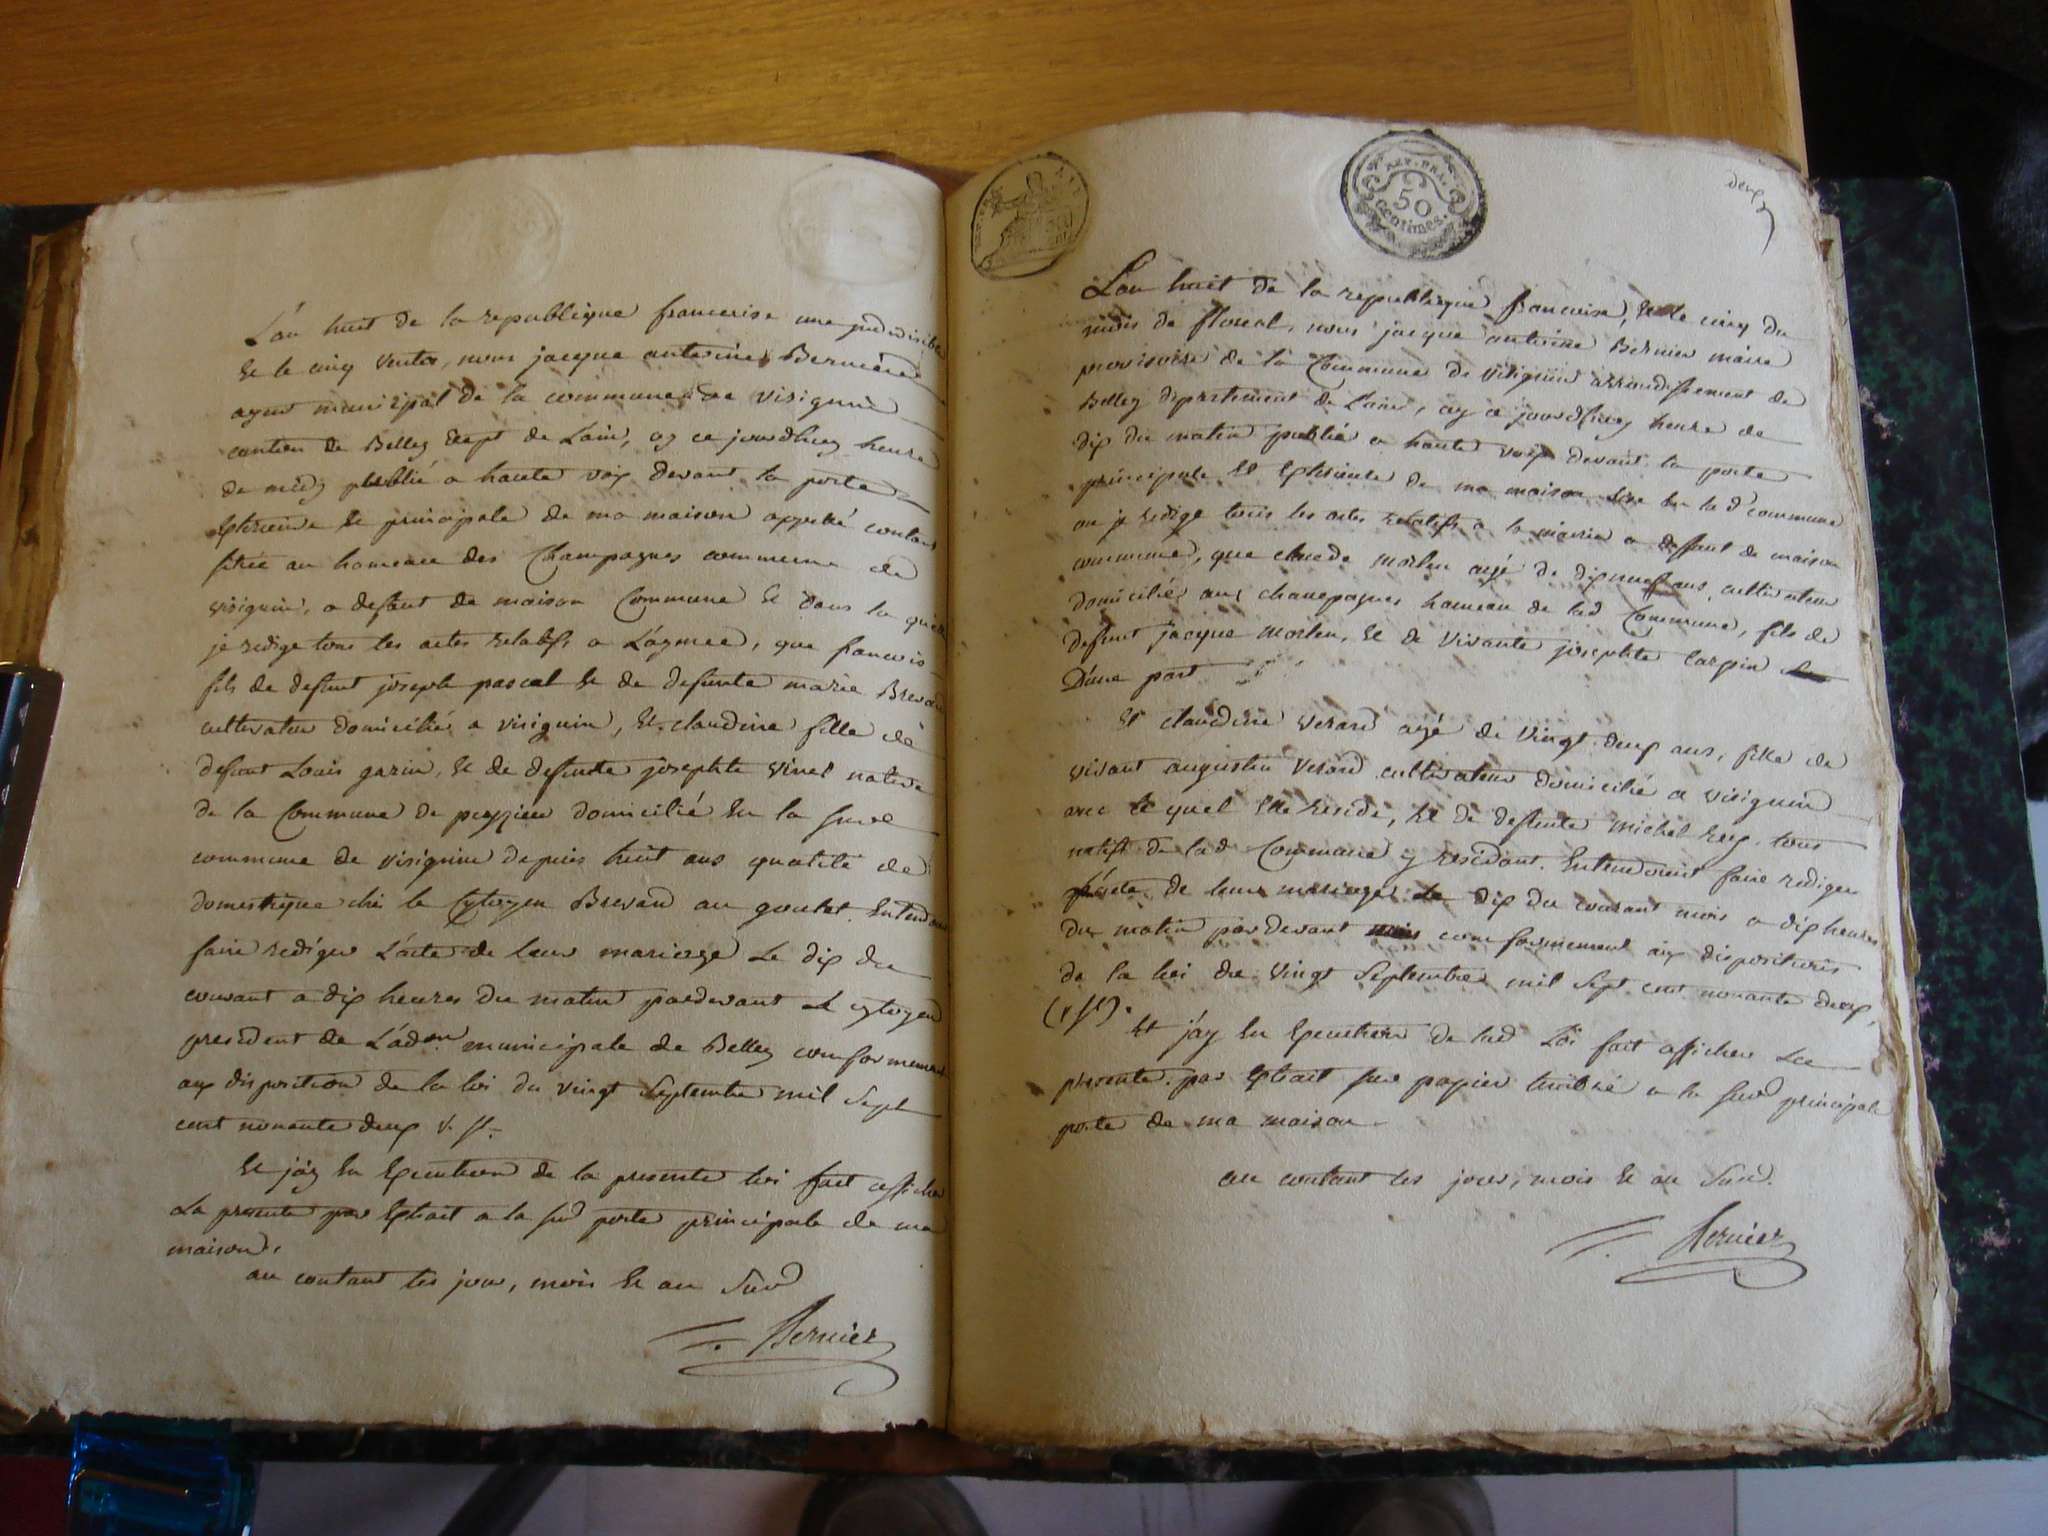 L'an huit de la republique francaise une indivisible
Et le cinq ventos, nous jacque antoine Bernier
agent municipal de la commune de visignin
canton de Belley dept de Lain, ay ce jourdhuy heure
de midy publié a haute voix devant la porte
Exterieure et principale de ma maison appellé contant
sitüe au hameau des Champagnes commune de
visignin, a defaut de maison Commune et dans la quelle
je redige tous les actes relatifs a L'agence, que francois
fils de defunt joseph pascal et de defunte marie Brevard
cultivateur domicilié a visignin, Et claudine fille de
defunt Louis garin, et de defunte josephte vinet native
de la Commune de peyzieu domicilié en la susd
commune de visignin depuis huit ans qualité de
domestique ché le Cytoyen Brevard au goutet. Entendent
faire rediger L'acte de leur mariage Le dix du
courant a dix heures du matin pardevant Le cytoyen
president de L'adon municipale de Belley conformement
aux disposition de la loi du vingt Septembre mil Sept
cent nonante deux v. st.
Et j'ay En Execution de la presente loi fait afficher
La presente par Extrait a la sud porte principale de ma
maison.
au contant les jour, mois et an Susd
Bernier
AIN
REP. FRA.
50
Centimes.
deux
L'an huit de la republique francaise, Et le cinq du
mois de floreal, nous jacque antoine Bernier maire
provisoire de la Commune de visignin arrondissement de
Belley département de Lain, ay ce jourdhuy heure de
dix du matin publié a haute voix devant la porte
principale et Exterieure de ma maison sise en lad commune
ou je redige tous les actes relatifs a la mairie a deffaut de maison
commune, que claude morlin agé de dixneuf ans, cultivateur
domicilié aux champagnes hameau de lad Commune, fils de
defunt jacque morlin, et de vivante josephte Carpin
D'une part
Et claudine verard agé de vingt deux ans, fille de
vivant augustin verard cultivateur domicilié a visignin
avec le quel Elle reside, et de defunte michel rey. tous
natifs de lad Commune y residant. Entendoient faire rediger
de leur mariage le dix du courant mois a dix heures
du matin pardevant nous conformement aux dispositions
de la loi du vingt Septembre mil sept cent nonante deux
(v st).
Et j'ay En Execution de lad Loi fait afficher La
presente par Extrait sur papier timbré a la susd principale
porte de ma maison.
au contant les jour, mois et an Susd.
Bernier